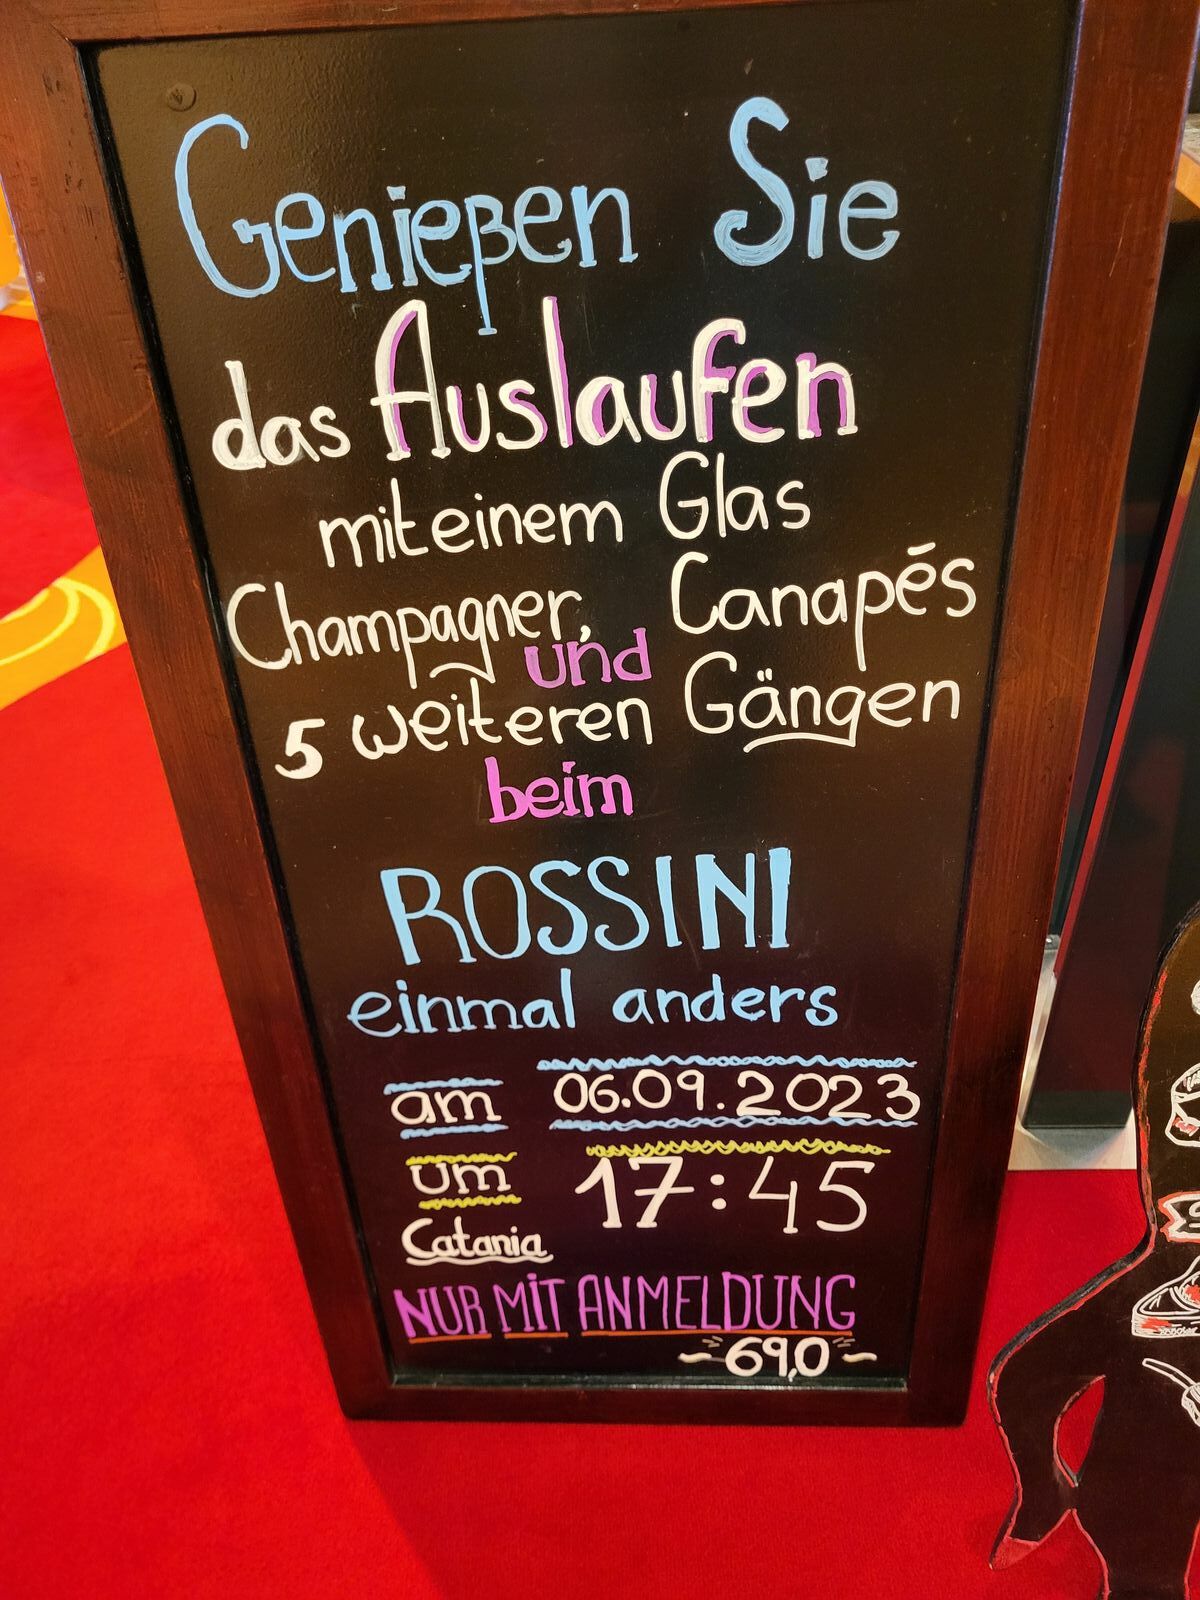 Genießen Sie
das Auslaufen
mit einem Glas
Champagner, Canapés
und
5 weiteren Gängen
beim
ROSSINI
einmal anders
am 06.09.2023
um 17:45
Catania
NUR MIT ANMELDUNG
~ 69,0 ~